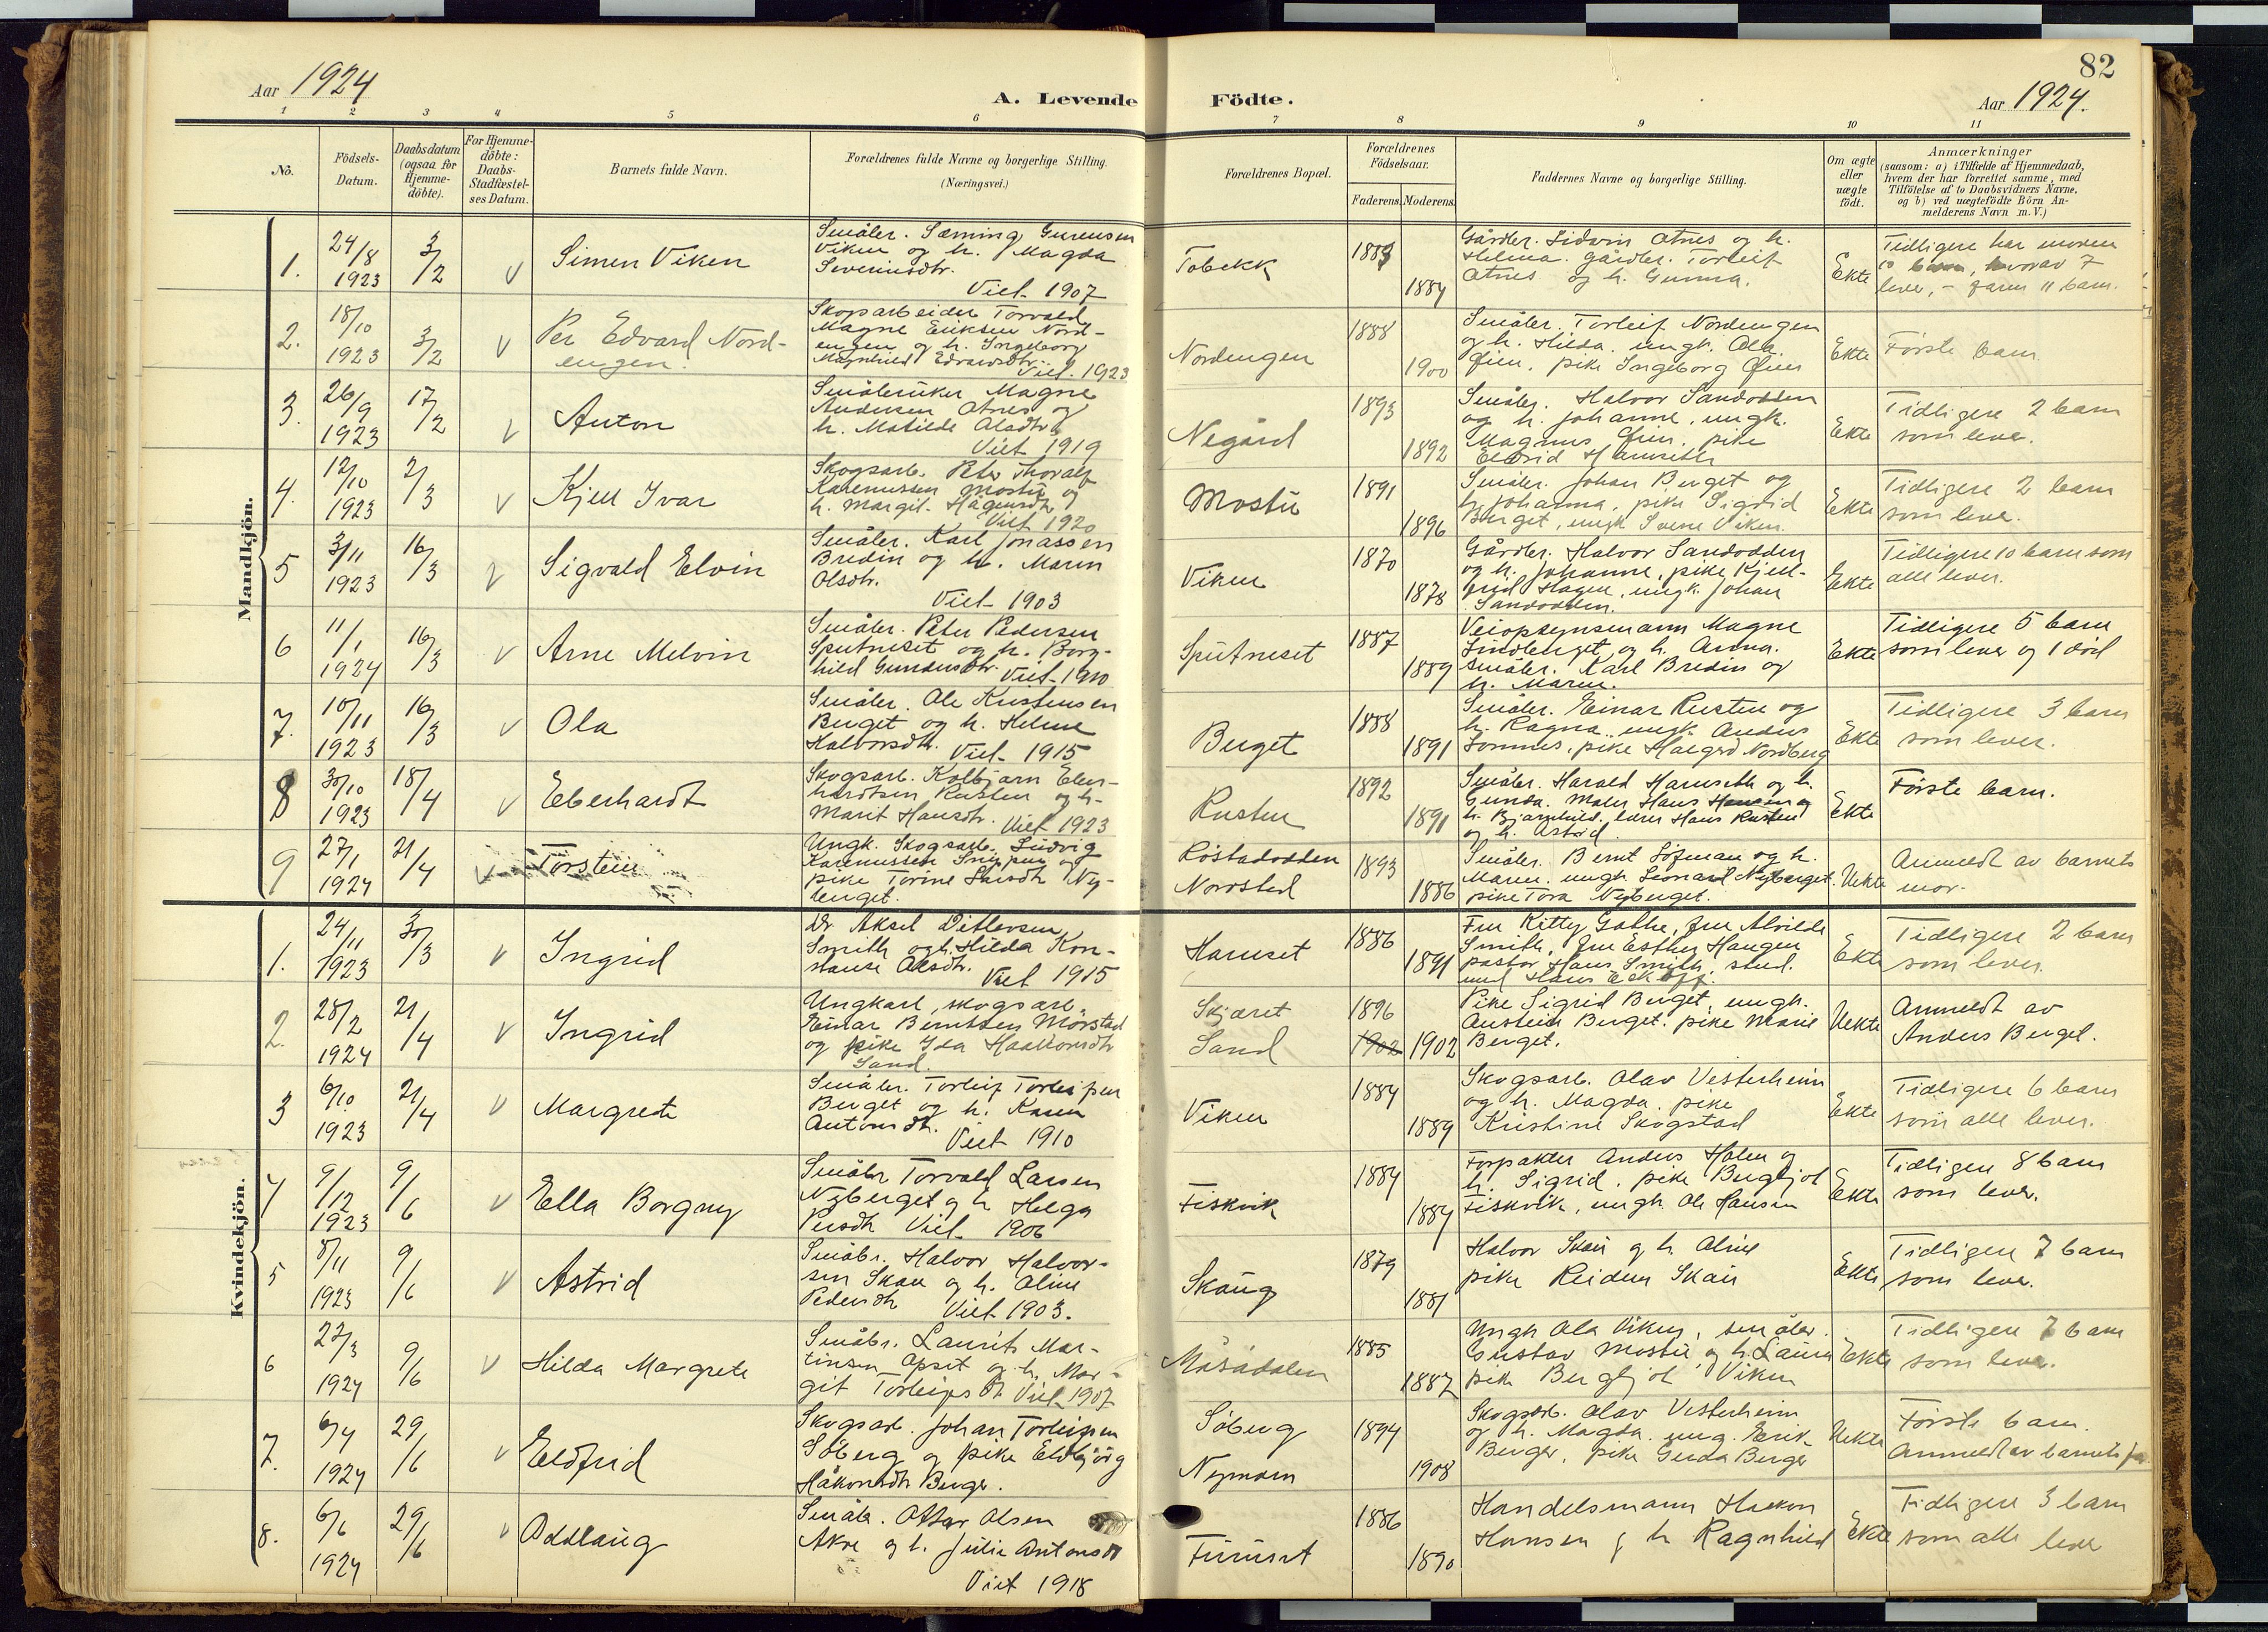 82
Aar 1924
A. Levende Födte.
Aar 1924.
1 2 3 4 5 6 7 8 9 10 11
No.
Födsels-Datum.
Daabsdatum (ogsaa for Hjemme-döbte).
For Hjemme-döbte: Daabs-Stadfæstel-ses Datum.
Barnets fulde Navn.
Forældrenes fulde Navne og borgerlige Stilling.
(Næringsvei.)
Forældrenes Bopæl.
Forældrenes Födselsaar.
Faderens. Moderens.
Faddernes Navne og borgerlige Stilling.
Om ægte eller uægte födt.
Anmærkninger
(saasom: a) i Tilfælde af Hjemmedaab,
hvem der har forrettet samme, med
Tilföielse af to Daabsvidners Navne,
og b) ved uægtefödte Börn An-
melderens Navn m. V.)
Mandkjön.
1. 24/8 1923 3/2 v Simen Viken
Småbr. Sæming
Viken og h. Magda
Severinsdtr.
Viet 1907
Tobekk 1883 1884
Gårdbr. Sidvin Atnes og h.
Helma. gårdbr. Torleif
Atnes og h. Gunna.
Ekte
Tidligere har moren
10 barn, hvorav 7
lever, - faren 11 barn.
2. 18/10 1923 3/2 v Per Edvard Nord-
engen.
Skogsarbeider Torvald
Magne Eriksen Nord-
engen og h. Ingeborg
Magnhild Edvardsdtr.
Viet. 1923
Nordengen 1888 1900
Småbr. Torleif Nordengen
og h. Hilda. ungk. Ola
Øien, pike Ingeborg Øien
Ekte
Første barn
3. 26/9 1923 17/2 v Anton
Småbruker Magne
Andersen Atnes og
h. Matilde Olsdtr.
Viet 1919
Negård 1893 1892
Småbr. Halvor Sandodden
og h. Johanne, ungk.
Magnus Øien, pike
Eldrid Harnseth
Ekte
Tidligere 2 barn
som lever.
4. 12/10 1923 2/3 v Kjell Ivar
Skogsarb. Peter Thoralf
Karenussen Mostu og
h. Margit Hågensdtr.
Viet 1920
Mostu 1891 1896
Småbr. Johan Berget og
h. Johanna, pike Sigrid
Berget, ungk Sverre Viken.
Ekte
Tidligere 2 barn
som lever.
5 3/11 1923 16/3 v Sigvald Elvin
Småbr. Karl Jonassen
Bredin og h. Maren
Olsdtr.
Viet 1903
Viken 1870 1878
Gårdbr. Halvor Sandodden
og h. Johanne, pike Kjell-
frid Hagen, ungk. Johan
Sandodden.
Ekte
Tidligere 10 barn som
alle lever.
6 11/1 1924 16/3 v Arne Melvin
Småbr. Peter Pedersen
Sputneset og h. Borg-
hild Gundersdtr. Viet 1910
Sputneset 1887 1889
Veiopsynsmann Magne
Lindberget og h. Anna.
Småbr. Karl Bredin og
h. Maren.
Ekte
Tidligere 5 barn
som lever og 1 død
7. 10/11 1923 16/3 v Ola
Småbr. Ole Kristensen
Berget og h. Helene
Halvorsdtr. Viet 1915
Berget 1888 1891
Småbr. Einar Rusten og
h. Ragna. ungk. Anders
Lomnes, pike Halgerd Nordberg
Ekte
Tidligere 3 barn
som lever.
8 30/10 1923 18/4 v Eberhardt
Skogsarb. Kolbjørn Eber-
hardtsen Rusten og h.
Marit Hansdtr. Viet 1923
Rusten 1892 1891
Småbr. Harald Harnseth og h.
Gunda. Maler Hans Hansen og
h. Bjarnhild. lærer Hans Rusten
og h. Astrid
Ekte
Første barn.
9 27/1 1924 21/4 v Torstein
Ungk. Skogsarb. Ludvig
Karenussen Snippen og
pike Torine Larsdtr Ny-
berget.
Rostadodden
Norstad 1893 1886
Småbr. Bernt Løfman og h.
Maren. ungk. Leonard Nyberget.
pike Tora Nyberget.
Uekte
Anmeldt av barnets
mor.
Kvindekjön.
1. 24/11 1923 30/3 v Ingrid
Dr. Aksel Ditlevsen
Smith og h. Hilda Kon-
stanse Olsdtr.
Viet 1915
Harnset 1886 1891
Fru Kitty Gothe, fru Alvilde
Smith, fru Esther Haugen
pastor Hans Smith, stud.
med Hans Eckhoff.
Ekte
Tidligere 2 barn
som lever.
2. 28/2 1924 21/4 v Ingrid
Ungkarl, skogsarb.
Einar Berntsen Mørstad
og pike Ida Haakonsdtr
Sand.
Skjæret
Sand 1896 1902 1902
Pike Sigrid Berget, ungk.
Austein Berget. pike Marie
Berget.
Uekte
Anmeldt av
Anders Berget.
3 6/10 1923 21/4 v Margrete
Småbr. Torleif Torleifsen
Berget og h. Karen
Antonsdtr.
Viet 1910
Viken 1884 1889
Skogsarb. Olav Vesterheim
og h. Magda. pike
Kristine Skogstad
Ekte
Tidligere 6 barn
som alle lever.
4 9/12 1923 9/6 v Ella Borgny
Småbr Torvald Larsen
Nyberget og h Helga
Persdtr Viet 1906
Fiskvik 1884 1884
Forpakter Anders Holen og
h. Sigrid. pike Bergljot
Fiskvik, ungk Ole Hansen
Ekte
Tidligere 8 barn
som lever.
5 8/11 1923 9/6 v Astrid
Småbr. Halvor Halvor-
sen Skau og h. Aline
Pedersdtr Viet 1903.
Skaug 1879 1881
Halvor Skau og h. Aline
pike Reidun Skau
Ekte
Tidligere 7 barn
som lever.
6 27/3 1924 9/6 v Hilda Margrete
Småbr. Laurits Mar-
tinsen Opset og h. Mar-
git Torleifsdtr Viet 1907
Misådalen 1885 1887
Ungk Ola Viken, småbr.
Gustav Mostu og h Laura
pike Bergljot Viken
Ekte
Tidligere 7 barn
som lever.
7. 6/4 1924 29/6 v Eldfrid
Skogsarb. Johan Torleifsen
Søberg og pike Eldbjørg
Håkonsdtr Berger.
Søberg
Nymoen 1894 1908
Skogsarb. Olav Vesterheim
og h. Magda. ung. Erik
Berger, pike Gerda Berger
Uekte
Første barn.
Anmeldt av barnets far
8. 6/6 1924 29/6 v Oddlaug
Småbr. Ottar Olsen
Akre og h. Julie Antonsdtr
Viet 1918
Furuset 1886 1890
Handelsmann Haakon
Hansen og h Ragnhild
Ekte
Tidligere 3 barn
som alle lever